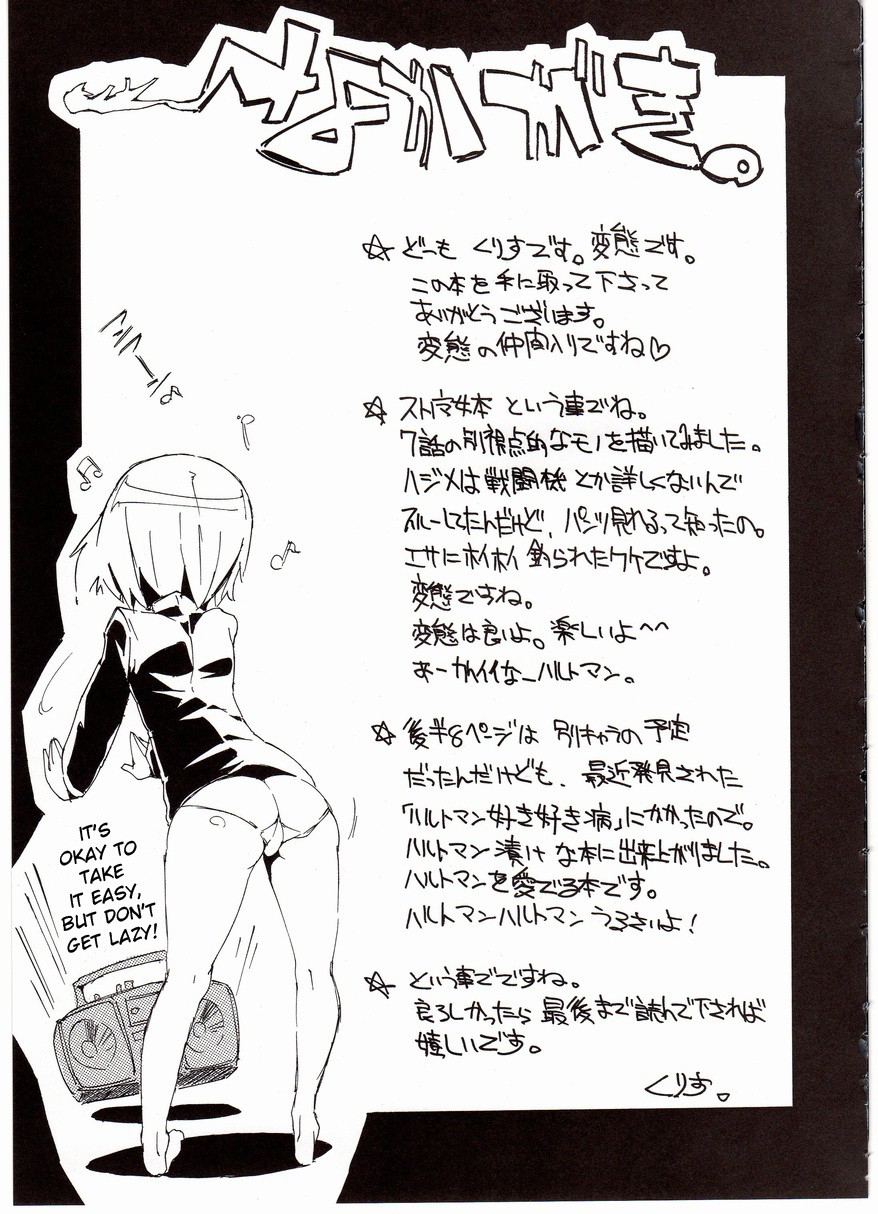 なかがき。
☆どーも くりすです。変態です。
この本を手に取って下さって
ありがとうございます。
変態の仲間入りですね♡
☆ストマ女本 という事でね。
7話の別視点的なモノを描いてみました。
ハジメは戦闘機とか詳しくないんで
スルーしてたんだけど、パンツ見れるって知ったの。
エサにホイホイ釣られたワケですよ。
変態ですね。
変態は良いよ。楽しいよ^^
あーかわイイなーハルトマン。
☆後半8ページは 別キャラの予定
だったんだけども、最近発見された
「ハルトマン好き好き病」にかかったので。
ハルトマン漬けな本に出来上がりました。
ハルトマンを愛でる本です。
ハルトマンハルトマンうるさいよ!
☆という事でですね。
良ろしかったら最後まで読んで下されば
嬉しいです。
くりす。
IT'S
OKAY TO
TAKE
IT EASY,
BUT DON'T
GET LAZY!